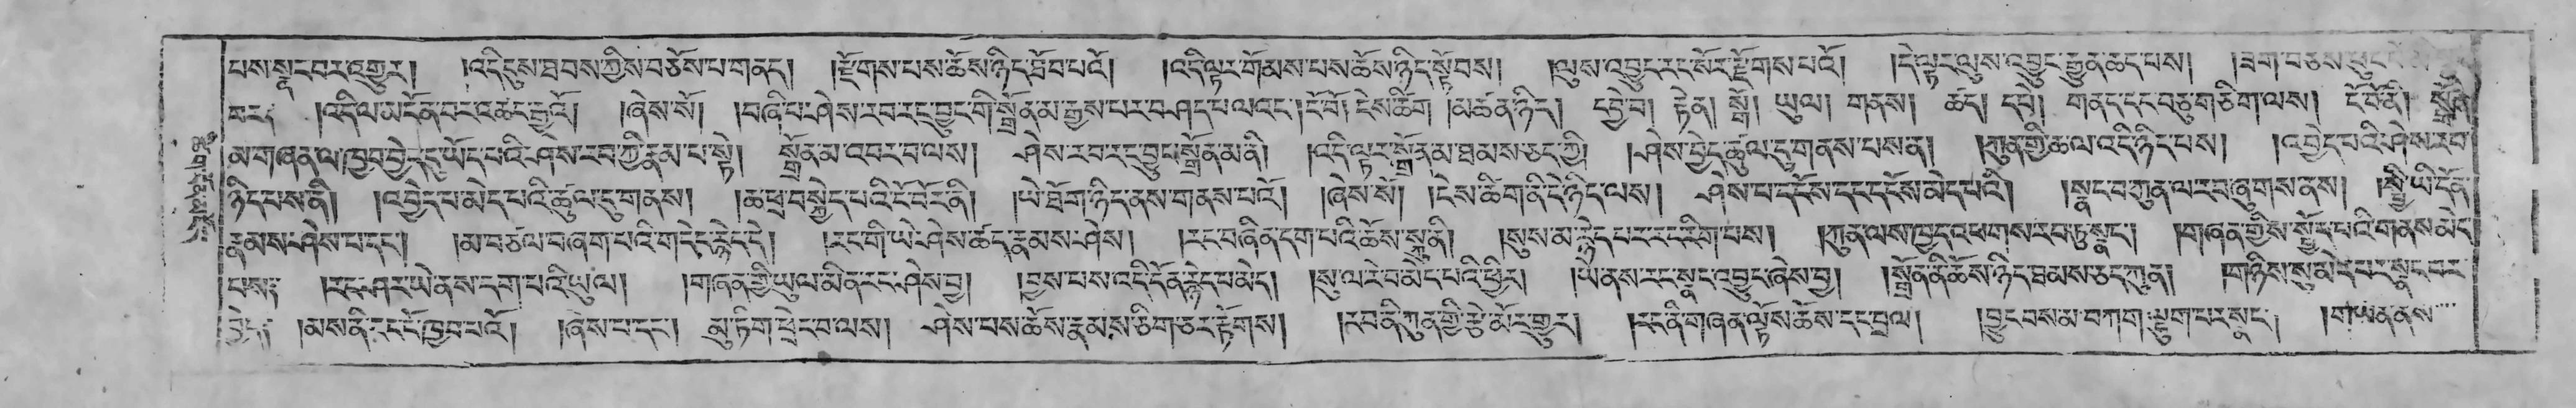 པས་སྣང་བར་འགྱུར། །འདི་དུས་ཐབས་ཀྱིས་བཅོས་པ་གནད། །རྫོགས་པས་ཆོས་ཉིད་ཐོབ་པའོ། །འདི་ལྟར་གོམས་པས་ཆོས་ཉིད་སྟོབས། །ལུས་འབྱུང་རང་སོར་རྫོགས་པའོ། །དེ་ལྟར་ལུས་འབྱུང་རྒྱུན་ཆད་པས། །ཟག་བཅས་ཕུང་པོ་
བར། །འདི་ལ་མངོན་པར་འཚང་རྒྱའོ། །ཞེས་སོ། །བཞི་པ་ཤེས་རབ་རང་བྱུང་གི་སྒྲོན་མ་རྒྱས་པར་བཤད་པ་ལའང་། ངོ་བོ། ངེས་ཚིག །མཚན་ཉིད། དབྱེ་བ། རྟེན། སྒོ། ཡུལ། གནས། ཚད། དཔེ། གནད་དང་བཅུ་གཅིག་ལས། ངོ་བོ་ནི། སྒྲོན་
མ་གཞན་ལ་ཁྱབ་བྱེད་དུ་ཡོད་པའི་ཤེས་རབ་ཀྱི་རྣམ་པ་སྟེ། སྒྲོན་མ་འབར་བ་ལས། ཤེས་རབ་རང་བྱུང་སྒྲོན་མ་ནི། །འདི་ལྟར་སྒྲོན་མ་ཐམས་ཅད་ཀྱི། །ཤེས་བྱེད་ཚུལ་དུ་གནས་པས་ན། །ཀུན་གྱི་ཆ་ལ་འདི་ཉིད་པས། །འབྱེད་པའི་ཤེས་རབ་
ཉིད་པས་ནི། །འབྱེད་པ་མེད་པའི་ཚུལ་དུ་གནས། །ཆ་ཕྲ་བསྐྱེད་པའི་ངོ་བོར་ནི། །ཡེ་ཐོག་ཉིད་ནས་གནས་པའོ། །ཞེས་སོ། །ངེས་ཚིག་ནི་དེ་ཉིད་ལས། ཤེས་པ་དངོས་དང་དངོས་མེད་པའི། །སྣང་བ་ཀུན་ལ་རབ་ཞུགས་ནས། །སྤྱི་ཡི་དོན་
རྣམས་ཤེས་པ་དང་། །མ་བཙལ་བཞག་པའི་ག་དེང་རྙེད་དེ། །རང་གི་ཡེ་ཤེས་ཚད་རྣམས་ཤེས། །རང་བཞིན་དག་པའི་ཆོས་སྐུ་ནི། །སུས་མ་རྙེད་པར་རང་རིག་པས། །ཀུན་ལས་ཁྱད་འཕགས་རབ་ཏུ་སྣང་། །གཞན་གྱིས་སྤྱོད་པའི་གནས་མེད་
པས། །རང་ཤར་ཡེ་ནས་དག་པའི་ཡུལ། །གཞན་གྱི་ཡུལ་མིན་རང་ཤེས་བྱ། །བྱས་པས་འདི་དོན་རྙེད་པ་མེད། །སུ་ལ་རེ་བ་མེད་པའི་ཕྱིར། །ཡེ་ནས་རང་སྣང་འབྱུང་ཞེས་བྱ། །སྒྲོན་ནི་ཆོས་ཉིད་ཐམས་ཅད་ཀུན། །གཉིས་སུ་མེད་པར་སྣང་བར་
བྱེད། །མས་ནི་རང་ངོ་ཁྱབ་པའོ། །ཞེས་པ་དང་། མུ་ཏིག་ཕྲེང་བ་ལས། ཤེས་པས་ཆོས་རྣམས་ཅིག་ཅར་རྟོགས། །རབ་ནི་ཀུན་གྱི་རྩེ་མོར་གྱུར། །རང་ནི་གཞན་ལྟོས་ཆོས་དང་བྲལ། །བྱུང་བས་མ་བཀག་ལྷུག་པར་སྣང་། །གཡེ་ནས་